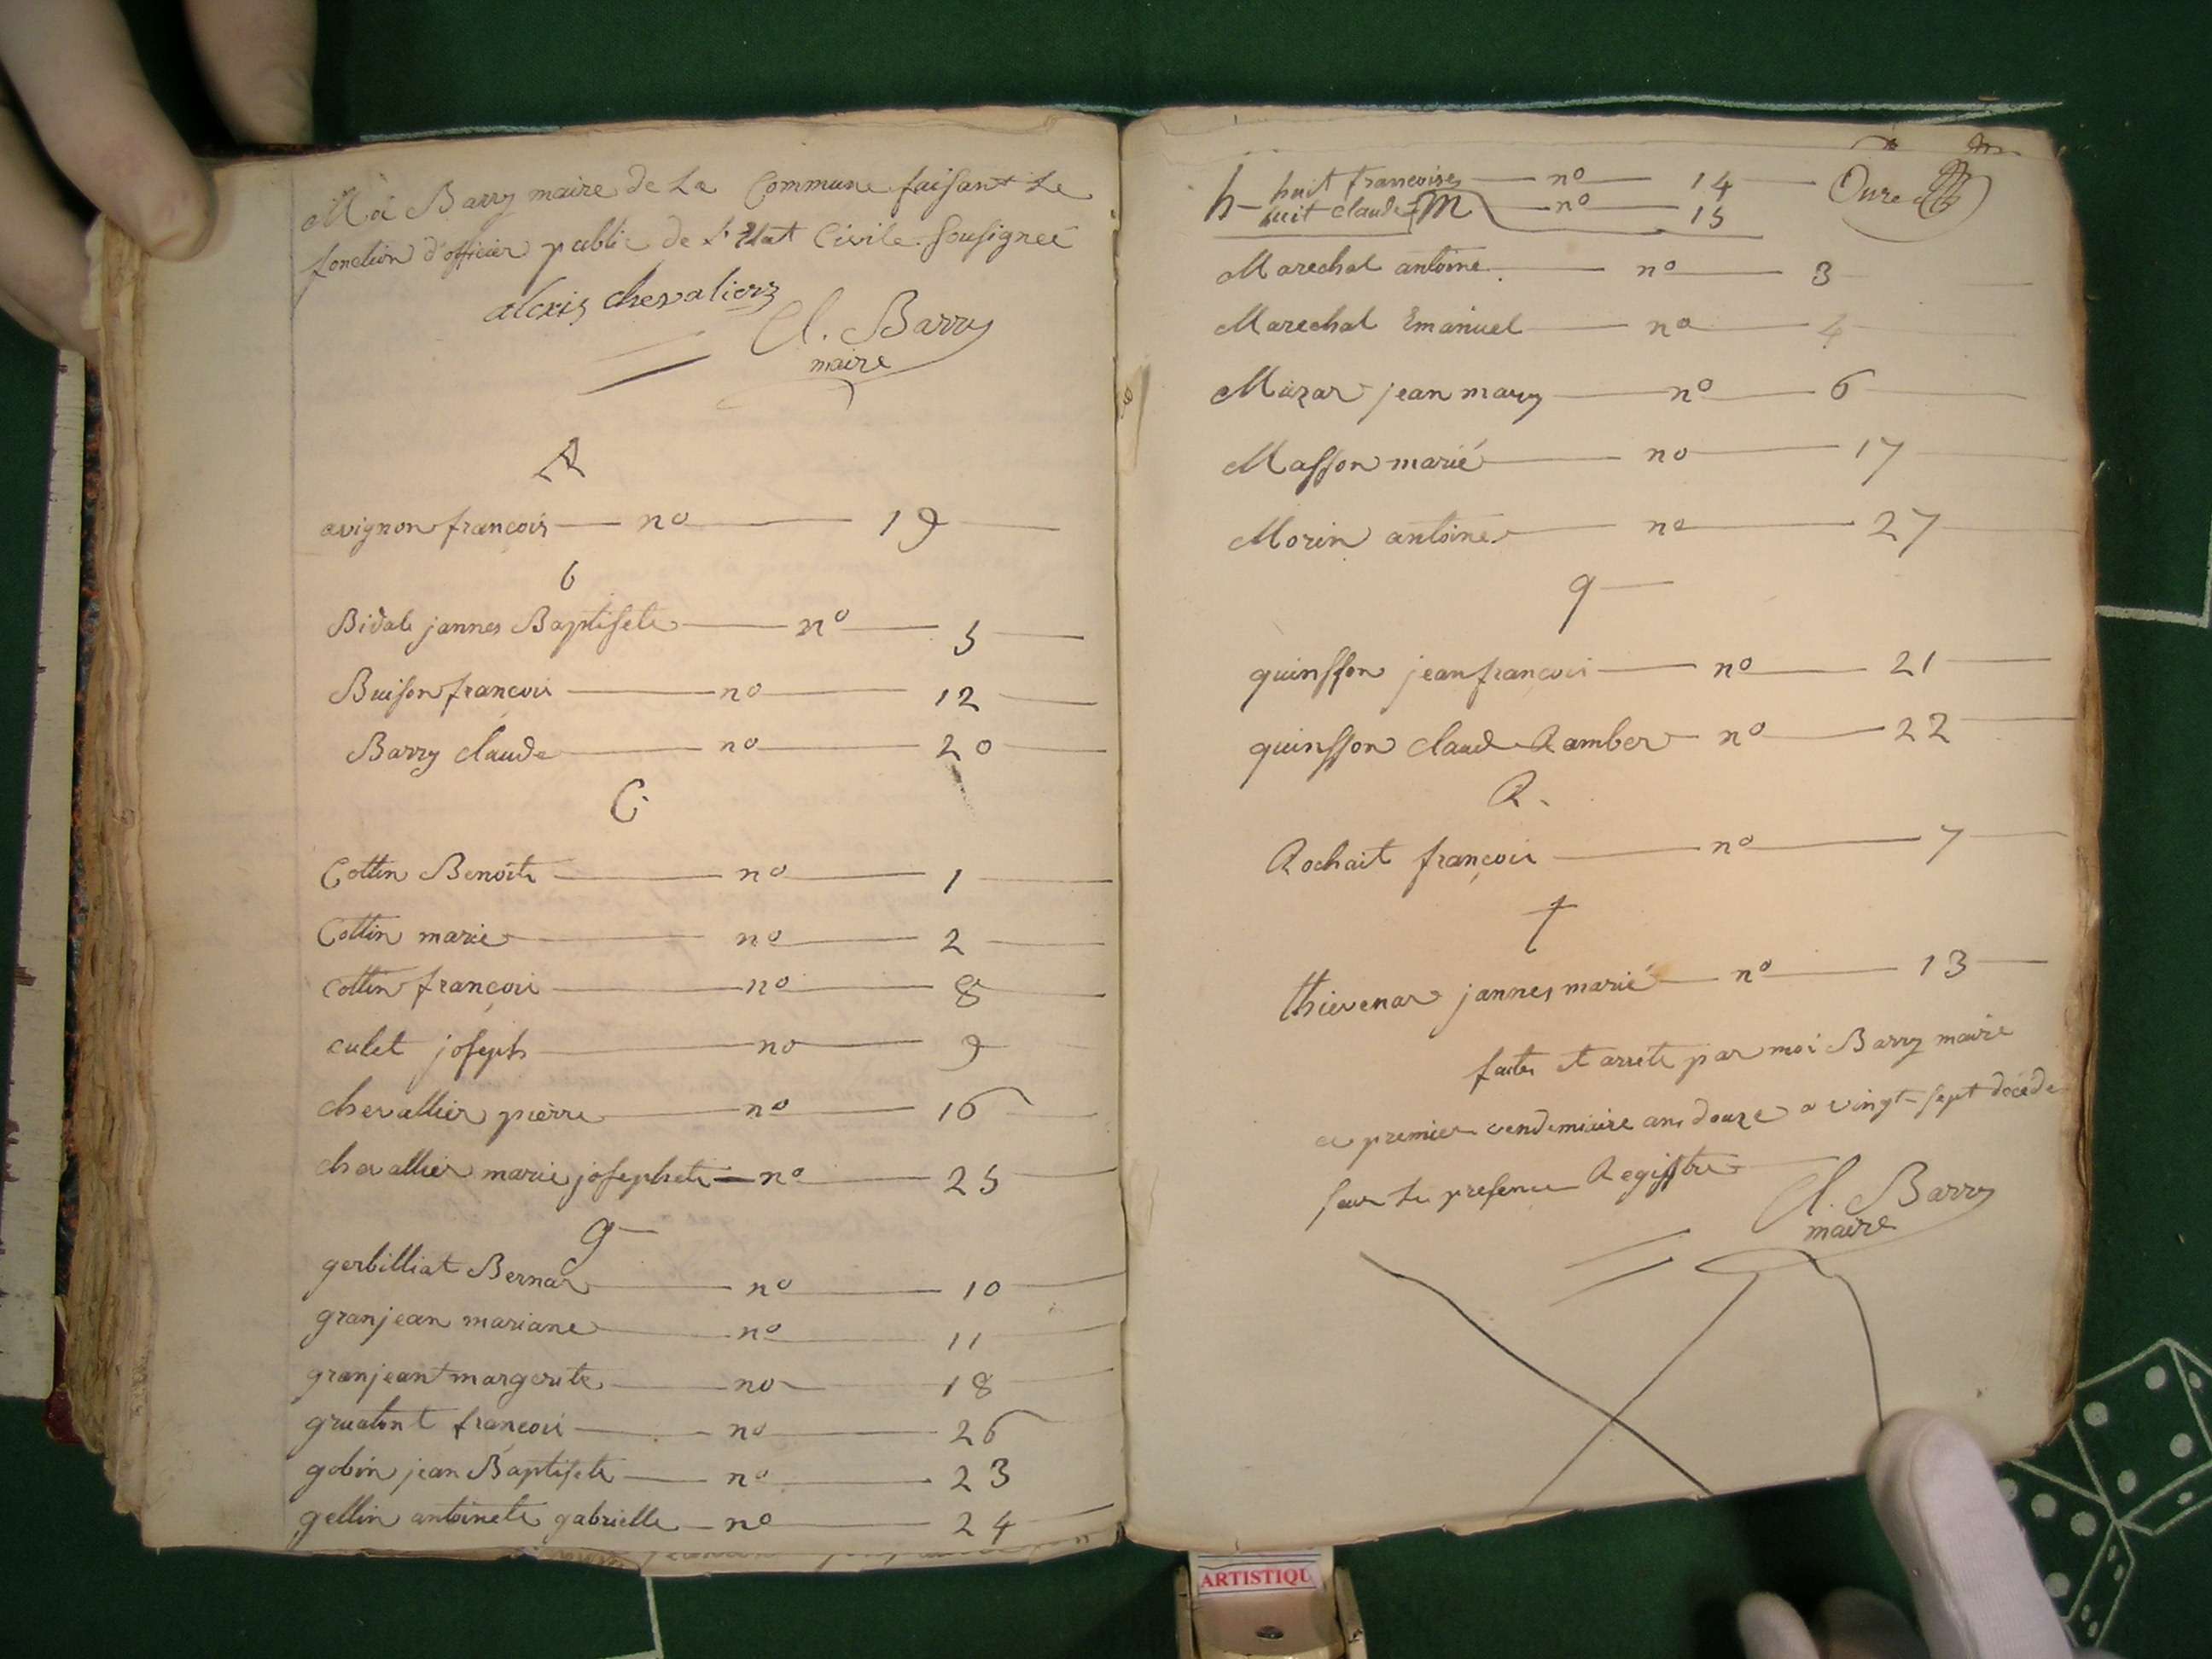 Moi Barry maire de La Commune faisant Le
fonction d'officier public de L'Etat Civile Sousigneé
alexis chevalierz
Cl. Barry
maire
A
avignon françois no 19
b
Bidale jannes Baptisete no 5
Buison françois no 12
Barry claude no 20
C
Cottin Benoite no 1
Cottin marie no 2
Cottin françois no 8
culet joseph no 9
chevallier pierre no 16
chevallier marie josephete no 25
g
gerbilliat Bernar no 10
granjean mariane no 11
granjeant margerite no 18
françois no 26
gobin jean Baptisete no 23
gellin antoinete gabrielle no 24
h huit francoises no 14
huit claude no 15
m
Marechal antoine no 3
Marechal Emanuel no 4
Mazar jean mary no 6
Masson marié no 17
Morin antoine no 27
q
quinsson jean françois no 21
quinsson claud Ramber no 22
R.
Rochait françois no 7
t
thievenar jannes marié no 13
faites et arrete par moi Barry maire
ce premier vendemiaire ans douze a vingt-sept décéde
sur Le presence Registre
Cl. Barry
maire
ARTISTIQU